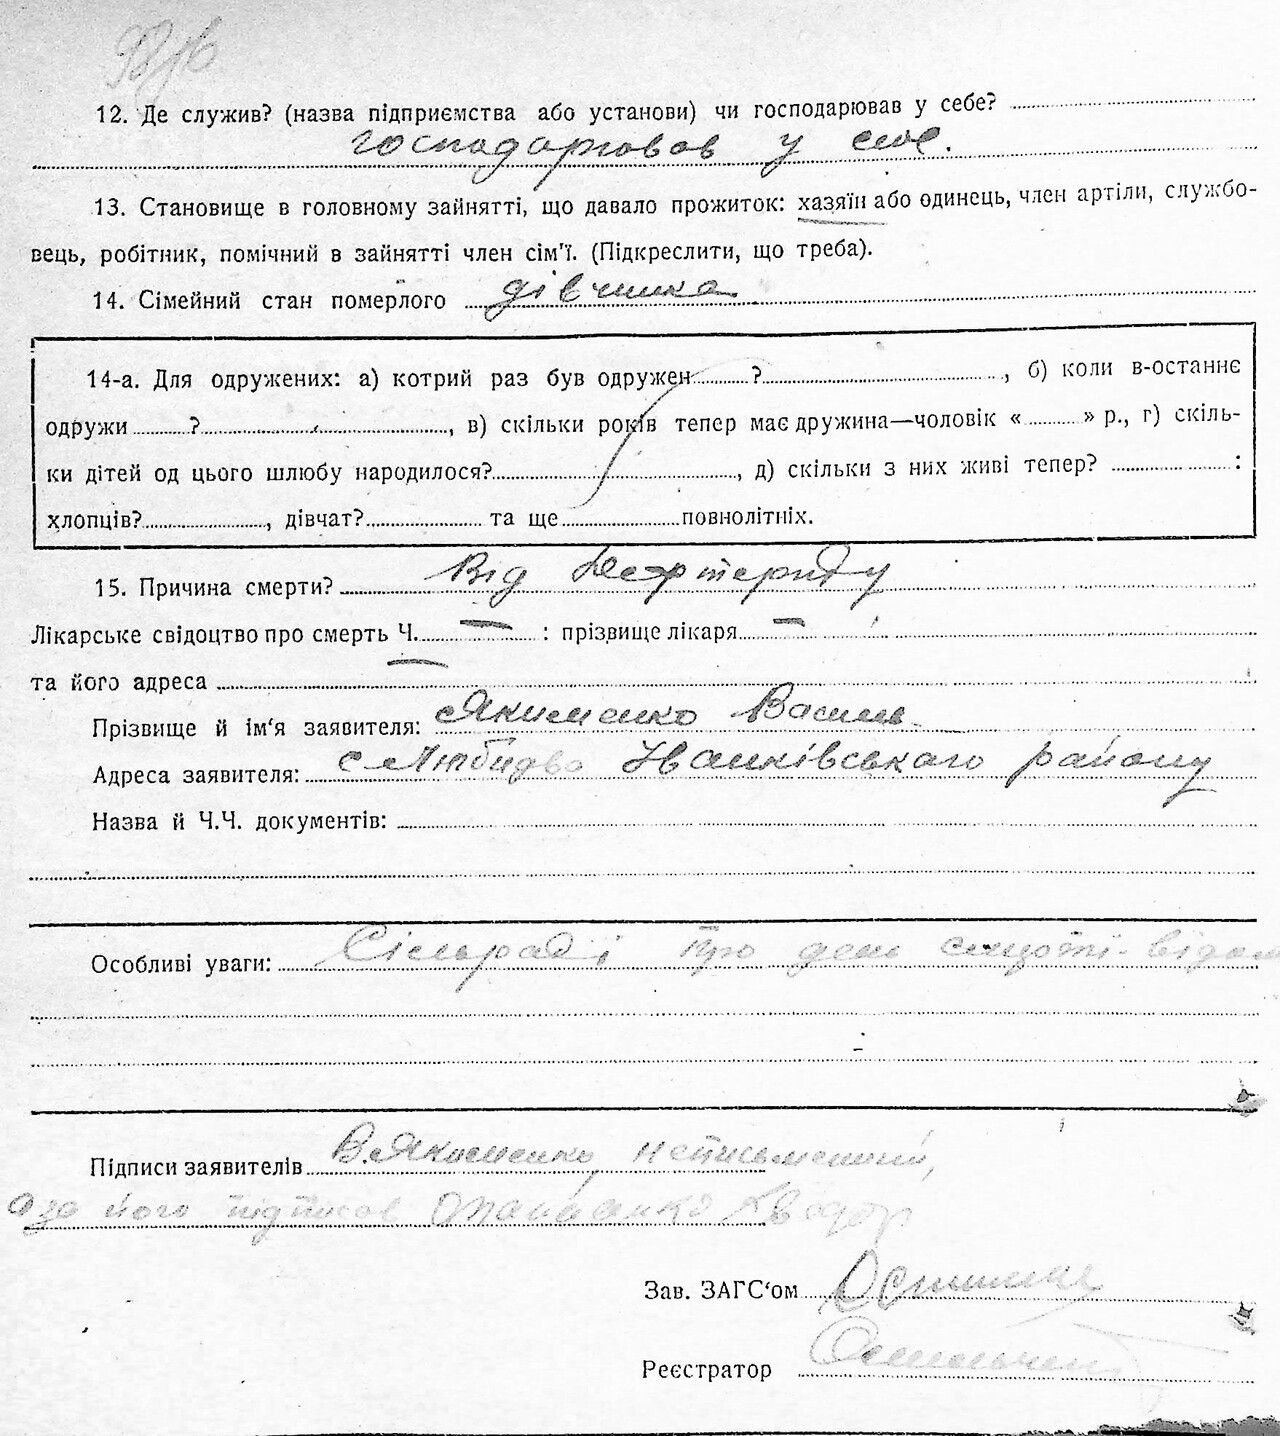 12. Де служив? (назва підприємства або установи) чи господарював у себе?
господарював у себе.
13. Становище в головному зайнятті, що давало прожиток: хазяїн або одинець, член артіли, службо-
вець, робітник, помічний в зайнятті член сім'ї. (Підкреслити, що треба).
14. Сімейний стан померлого дівчинка
14-а. Для одружених: а) котрий раз був одружен ? , б) коли в-останнє
одружи ? , в) скільки років тепер має дружина—чоловік « » р., г) скіль-
ки дітей од цього шлюбу народилося? , д) скільки з них живі тепер? :
хлопців? , дівчат? та ще повнолітніх.
15. Причина смерти? Від
Лікарське свідоцтво про смерть Ч. — : прізвище лікаря —
та його адреса —
Прізвище й ім'я заявителя: Якименко Василь
Адреса заявителя: с Іванківського району
Назва й Ч.Ч. документів:
Особливі уваги: Сільраді про день смерті
Підписи заявителів В. Якименко неписьменний,
а за його підписав
Зав. ЗАГС'ом
Реєстратор